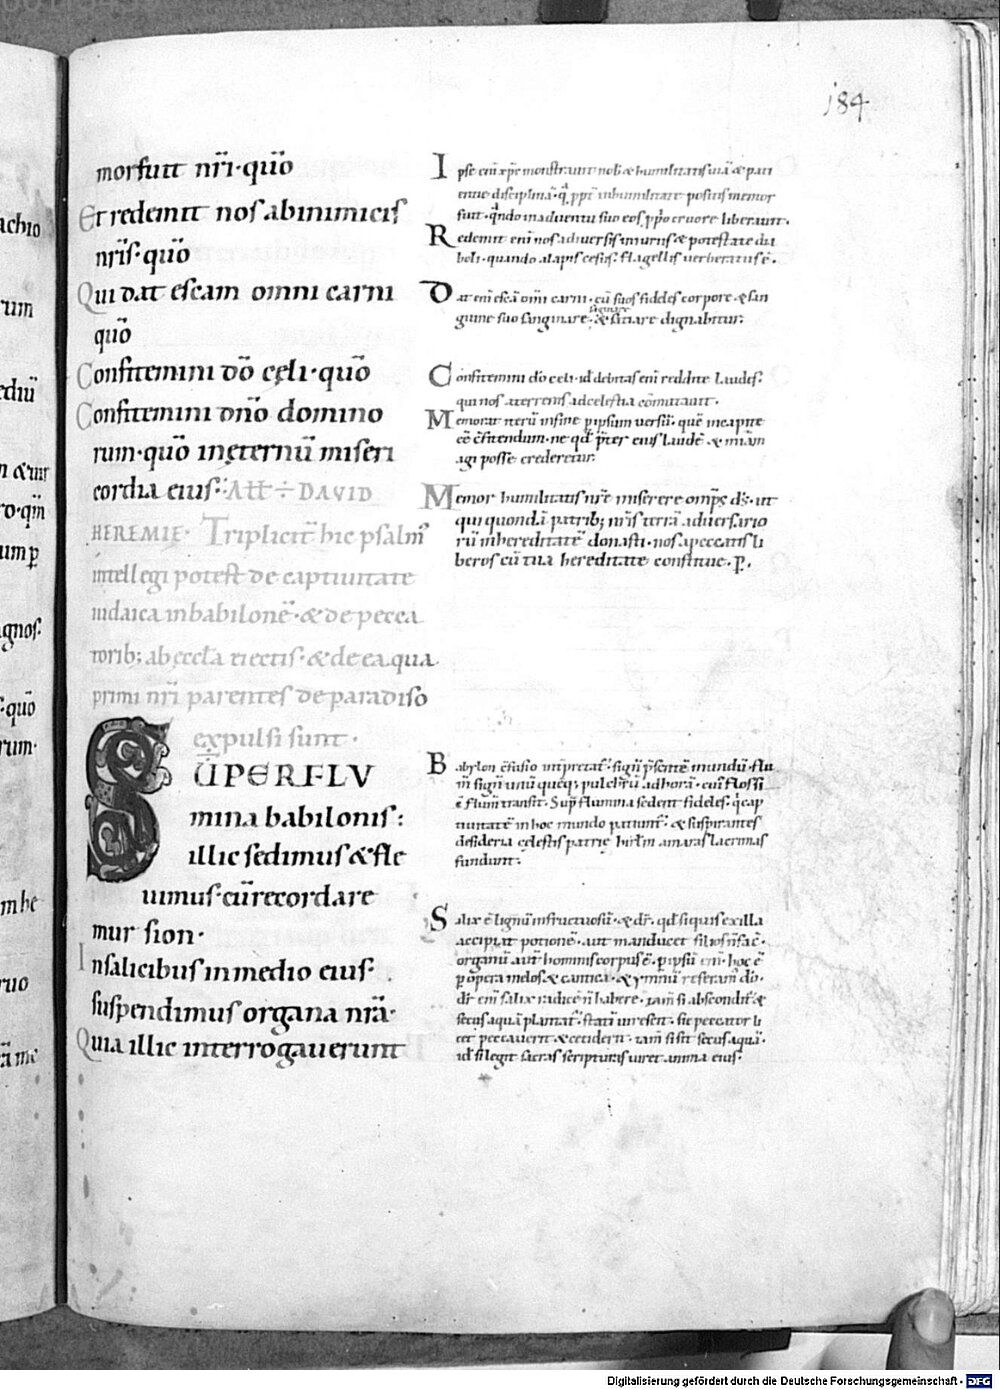 184
morsuıt nr̄i·quō
Et redemit nos abinimicis
nr̄is·quō
Qui dat escam omni carni
quō
Confitemini dō cęli·quō
Confitemini dn̄o domino
rum·quō inęternū miseri
cordia eius: ATT ÷ DAVID
HEREMIE· Triplicit̄ hic psalm᾽
intellegi potest de captiuitate
iudaica inbabilonē·&de pecca
torib; ab ęccl̄a eiectis·&de ea qua
primi nr̄i parentes de paradiso
expulsi sunt·
SUPERFLV
mina babilonis:
illic sedimus &fle
uimus·cū recordare
mur sion·
Insalicibus inmedio eius·
suspendimus organa nr̄a·
Quia illic interrogauerunt
Ipse eni xp̄c monstrauit nob & humilitatis uiā & pati
entie disciplinā· q̄ ppt̄ in humilitate positis memor
fuit· q̄ndo inaduentu suo eos p̄po cruore liberauit·
Redemit eni nos adiuersis iniuriis & potestate dia
boli· quando alapis cęsus· flagellis uerberatus ē·
Dat eni escā omi carni· cū suos fideles corpore & san
guine suo & satiare dignabitur·
Confitemini dō celi· id debitas eni reddite laudes·
qui nos aterrenis adcelestia cōmutauit·
Memorat iterū infine p ipsum uersū· quē incapite
ne q̄d p̄ter eius laudē & miam
agi posse crederetur·
Memor humilitatis nr̄e miserere omps ds̄· ut
qui quondā patrib; nr̄is terrā aduersario
rū in hereditatē donasti· nos apeccatis li
beros cū tua hereditate constitue· p̱·
Babylon c̄fusio int̄pretat̄· sign̄ p̄sentē mundū· flu
m̄ sign̄ unū quēq; pulchrū adhorā· cui flos si
ē flum̄ transit· Sup̄ flumina sedent fideles· q̄ cap
tiuitatē in hoc mundo patiunt̄· & suspirantes
desideria cęlestis patrię hirl̄m amaras lacrimas
fundunt·
Salix ē lignū infructuosū· & dr̄· qd̄ siquis exilla
accipiat potionē· aut manducet filios n̄ fac̄·
organū aut̄ hominis corpus ē· p ipsū eni· hoc ē
p opera melos & cantica· & ymnū referam dō·
dr̄ eni salix radice n̄ habere· tam̄ si abscondit̄ &
secus aquā plantat̄· statī uirescit· sic peccator li
cet peccauerit & ceciderit· tam̄ si sit secus aquā·
id si legit sacras scripturas uiret anima eius·
Digitalisierung gefördert durch die Deutsche Forschungsgemeinschaft - DFG